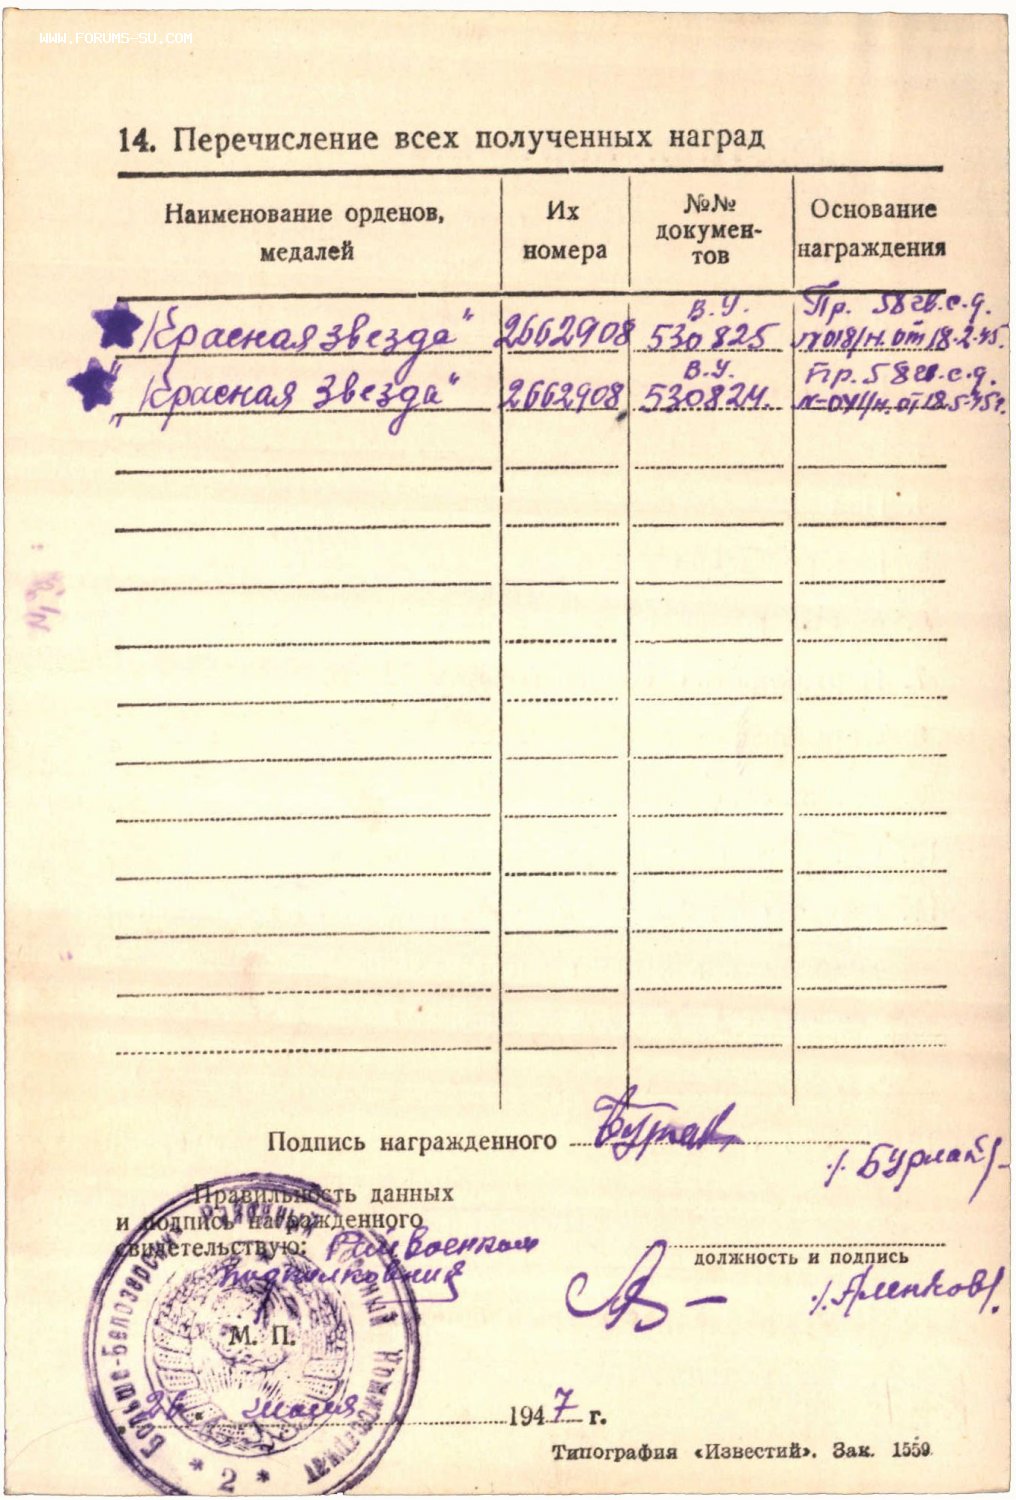 WWW.FORUMS-SU.COM
14. Перечисление всех полученных наград
Наименование орденов, медалей
Их номера
№№ докумен-тов
Основание награждения
"Красная звезда" 2662908 В.У. 530825 Пр. 58 гв.с.д. №018/н. от 18-2-45.
"Красная Звезда" 2662908 В.У. 530824. Пр. 58 гв.с.д. от 18.5-45г.
Подпись награжденного
/Бурлак/
Правильность данных
и подпись награжденного
свидетельствую: Райвоенком
подполковник
должность и подпись
/Аленков/.
М. П.
26. 1947 г.
Больше-Белозерский Районный Военный Комиссариат
* 2 *
Типография «Известий». Зак. 1559.